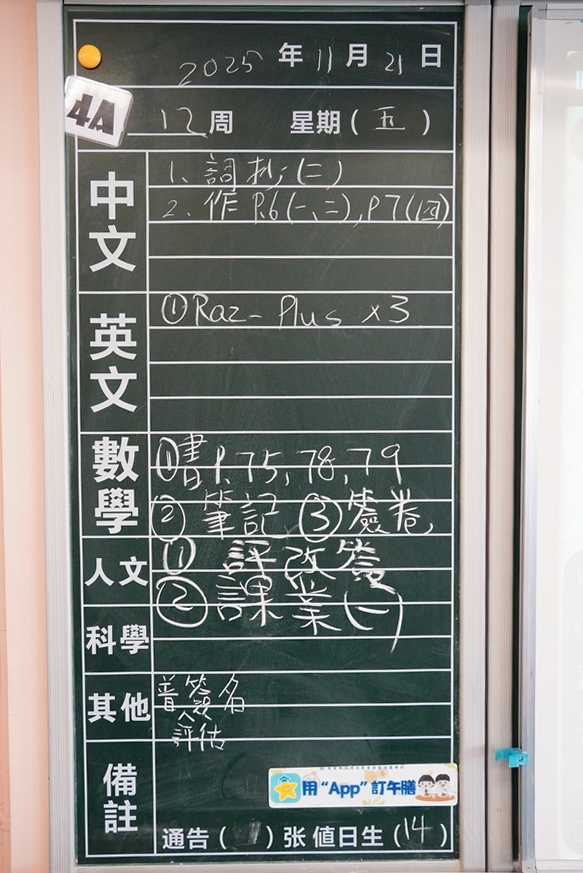 2025 年 11 月 21 日
4A
12 周 星期 ( 五 )
中文
1. 詞抄(二)
2. 作 P.6(一、三), P7(四)
英文
① Raz-Plus x3
數學
① 書 P.75, 78, 79
② 筆記 ③ 簽卷
人文
① 評改簽
② 課業(一)
科學
其他
普簽名
評估
備註
用 “App” 訂午膳
通告 ( ) 张 值日生 ( 14 )